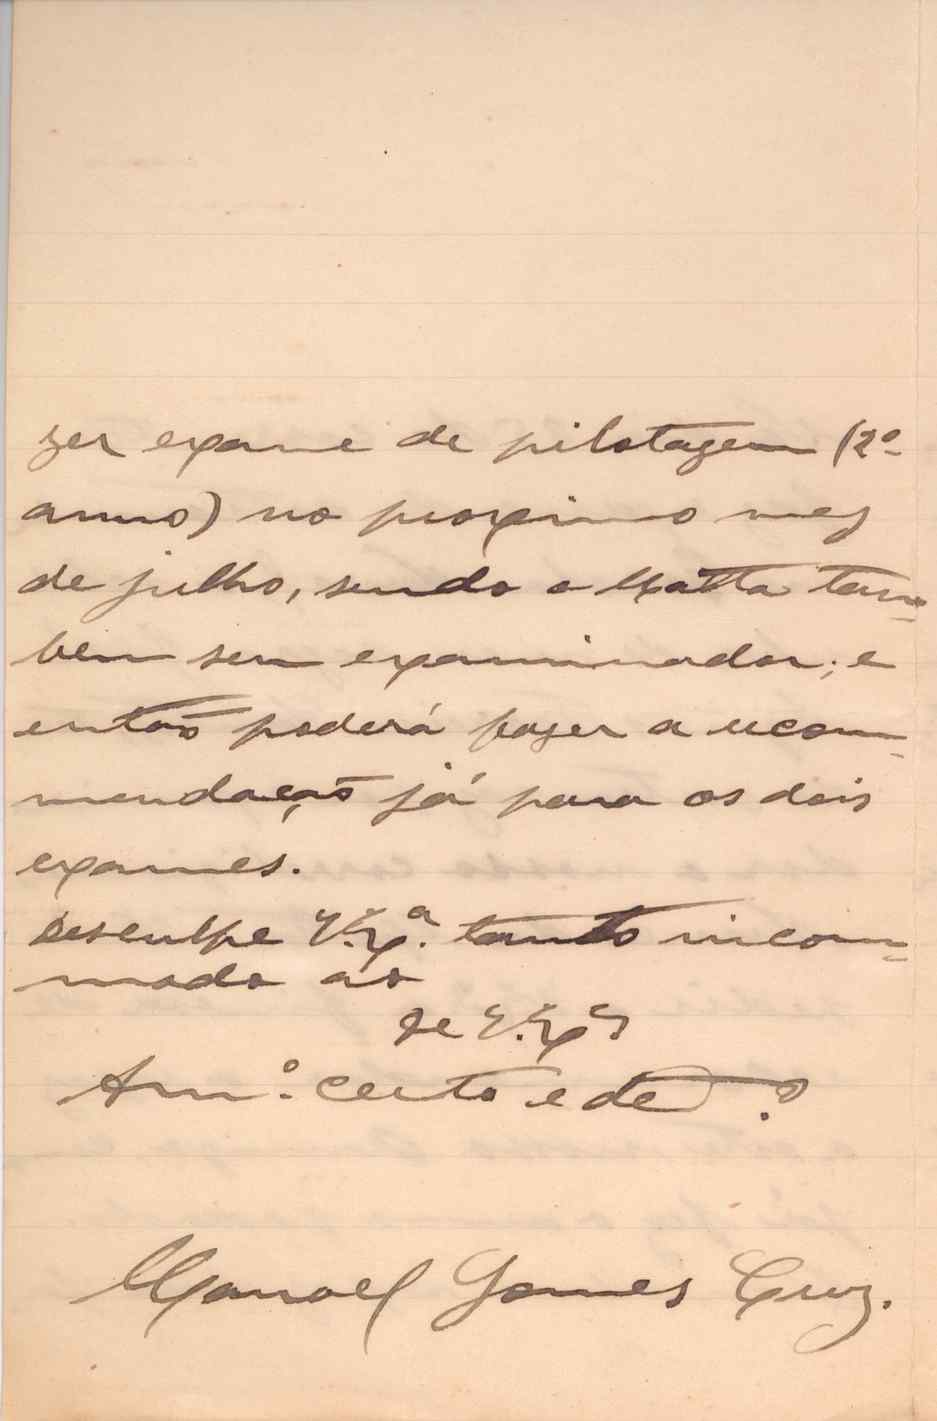 zer exame de pilotagem (2º
anno) no proximo mez
de julho, sendo o Matta tam-
bem seu examinador; e
então poderá fazer a recom-
mendação já para os dois
exames.
Desculpe V. Exª. tanto incom-
modo ao
de V. Exª
Amº. certo e
Manoel Gomes Cruz.